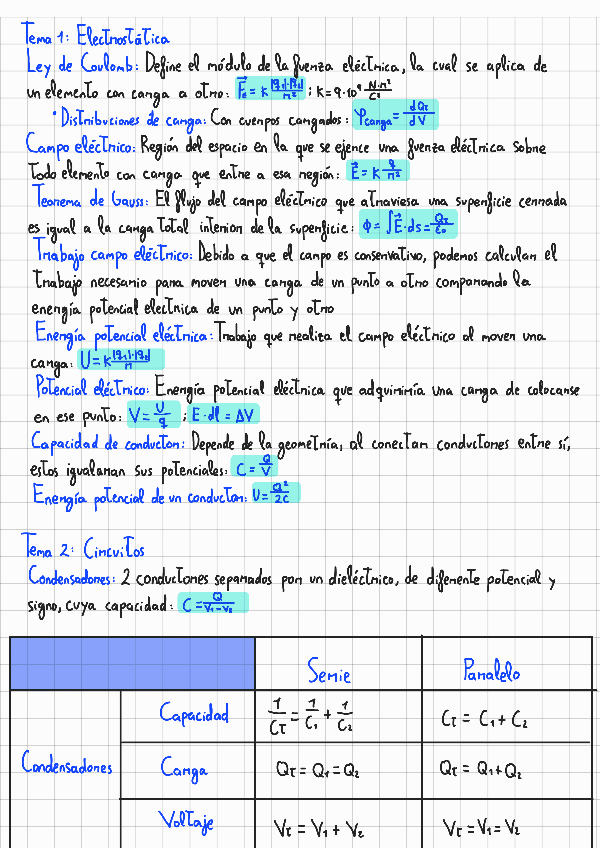 Tema 1: Electrostática
Ley de Coulomb: Define el módulo de la fuerza eléctrica, la cual se aplica de
un elemento con carga a otro: F⃗e = K |q1|·|q2| / r² ; K = 9·10⁹ N·m² / C²
• Distribuciones de carga: Con cuerpos cargados: φcarga = dQT / dV
Campo eléctrico: Región del espacio en la que se ejerce una fuerza eléctrica sobre
Todo elemento con carga que entre a esa región: E⃗ = K q / r²
Teorema de Gauss: El flujo del campo eléctrico que atraviesa una superficie cerrada
es igual a la carga total interior de la superficie: Φ = ∫E⃗·ds = QT / ε0
Trabajo campo eléctrico: Debido a que el campo es conservativo, podemos calcular el
trabajo necesario para mover una carga de un punto a otro comparando la
energía potencial electrica de un punto y otro
Energía potencial eléctrica: Trabajo que realiza el campo eléctrico al mover una
carga: U = K |q1|·|q2| / r
Potencial eléctrico: Energía potencial eléctrica que adquiriría una carga de colocarse
en ese punto: V = U / q ; E·dl = ΔV
Capacidad de conductor: Depende de la geometría, al conectar conductores entre sí,
estos igualaran sus potenciales: C = Q / V
Energía potencial de un conductor: U = Q² / 2C
Tema 2: Circuitos
Condensadores: 2 conductores separados por un dieléctrico, de diferente potencial y
signo, cuya capacidad: C = Q / V1 - V2
Serie Paralelo
Capacidad 1/CT = 1/C1 + 1/C2 CT = C1 + C2
Condensadores Carga QT = Q1 = Q2 QT = Q1 + Q2
Voltaje VT = V1 + V2 VT = V1 = V2